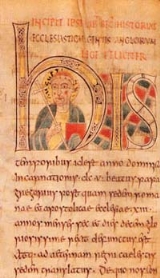 INCIPIT IPSIUS HISTORIAE
ECCLESIASTICAE GENTIS ANGLORUM
FELICITER
his
temporibus id est anno dominicae
incarnationis beatus papa
gregorius postquam sedem roma
nae et apostolicae ecclesiae xiii
annos menses sex et dies decem glo
riosissime rexit defunctus est
atque ad aeternam regni caelestis
sedem translatus de quo nos